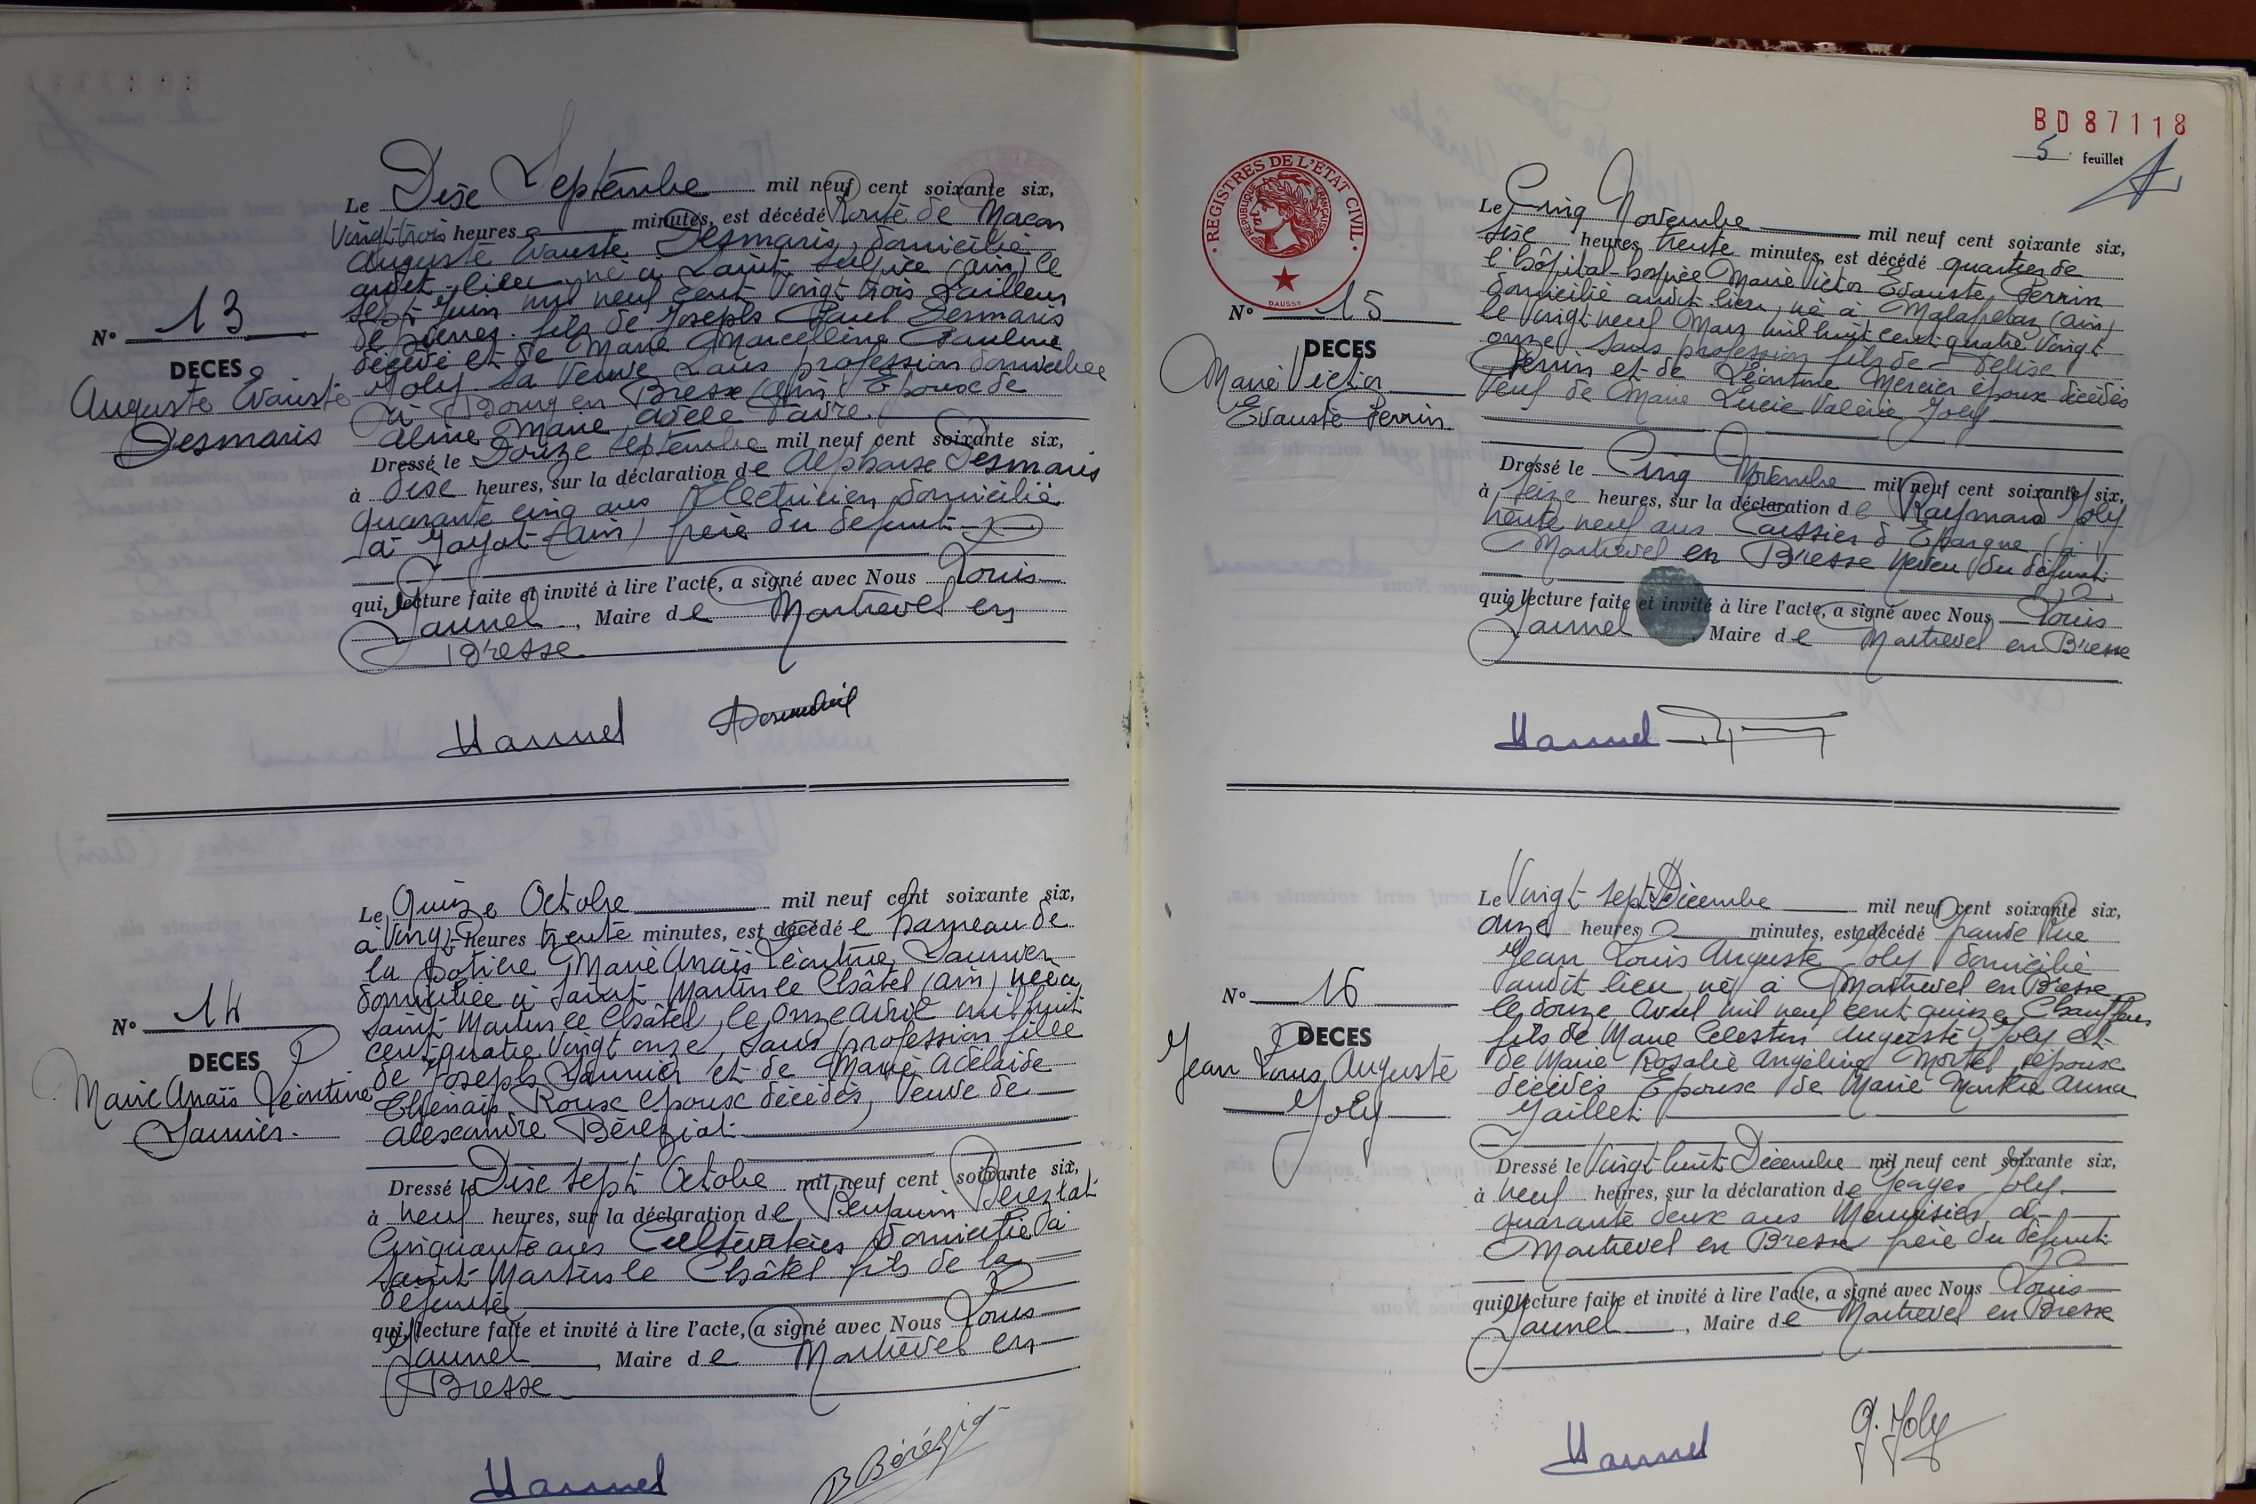 Le Dixe Septembre mil neuf cent soixante six,
Vingt trois heures minutes, est décédé Route de Macon
Auguste Evariste Desmaris, domicilié
audit lieu né à Saint Sulpice (ain) le
sept Juin mil neuf cent Vingt trois Tailleur
de pierres. fils de Joseph Paul Desmaris
N° 13
décédé et de Marie Marcelline Pauline
DECES
Joly sa Veuve sans profession domiciliée
Auguste Evariste
Desmaris
à Bourg en Bresse (ain) Epoux de
Aline Marie Adèle Favre.
Dressé le Douze Septembre mil neuf cent soixante six,
à dixe heures, sur la déclaration de Alphonse Desmaris
quarante cinq ans Electricien domicilié
à Jayat (ain) frère du défunt
qui, lecture faite et invité à lire l'acte, a signé avec Nous Louis
Jaunel, Maire de Montrevel en
Bresse
Le Quinze Octobre mil neuf cent soixante six,
à Vingt heures trente minutes, est décédée hameau de
la Potière Marie Anaïs Léontine Launier
domiciliée à Saint Martin le Châtel (ain) née à
Saint Martin le Châtel, le onze Avril mil huit
N° 14
cent quatre Vingt onze, sans profession fille
DECES
de Joseph Launier et de Marie Adélaïde
Marie Anaïs Léontine
Launier.
Roux époux décédés, Veuve de
Alexandre Béréziat
Dressé le Dixe sept Octobre mil neuf cent soixante six,
à neuf heures, sur la déclaration de Benjamin Béréziat
Cinquante ans Cultivateur domicilié à
Saint Martin le Châtel fils de la
défunte
qui, lecture faite et invité à lire l'acte, a signé avec Nous Louis
Jaunel, Maire de Montrevel en
Bresse
B Béréziat
BD87118
5 feuillet
REGISTRES DE L'ÉTAT CIVIL
RÉPUBLIQUE FRANÇAISE
DAUSSY
Le Cinq Novembre mil neuf cent soixante six,
sixe heures trente minutes, est décédé quartier de
l'hôpital-hospice Marie Victor Evariste Perrin
domicilié audit lieu, né à Malafretaz (ain)
N° 15
le Vingt neuf Mars mil huit cent quatre Vingt
DECES
onze sans profession fils de Délise
Marie Victor
Evariste Perrin
Perrin et de Léontine Mercier époux décédés
Veuf de Marie Lucie Valérie Joly
Dressé le Cinq Novembre mil neuf cent soixante six,
à seize heures, sur la déclaration de Raymond Joly
trente neuf ans Caissier d'Epargne à
Montrevel en Bresse neveu du défunt
qui, lecture faite et invité à lire l'acte, a signé avec Nous Louis
Jaunel Maire de Montrevel en Bresse
Le Vingt sept Décembre mil neuf cent soixante six,
onze heures minutes, est décédé Grande Rue
Jean Louis Auguste Joly domicilié
audit lieu né à Montrevel en Bresse
N° 16
le douze Avril mil neuf cent quinze Chauffeur
DECES
fils de Marie Célestin Auguste Joly et
Jean Louis Auguste
Joly
de Marie Rosalie Angéline Mortel époux
décédés Epoux de Marie Marthe Anna
Jaillet
Dressé le Vingt huit Décembre mil neuf cent soixante six,
à neuf heures, sur la déclaration de Georges Joly
quarante deux ans Menuisier à
Montrevel en Bresse frère du défunt
qui, lecture faite et invité à lire l'acte, a signé avec Nous Louis
Jaunel, Maire de Montrevel en Bresse
G. Joly